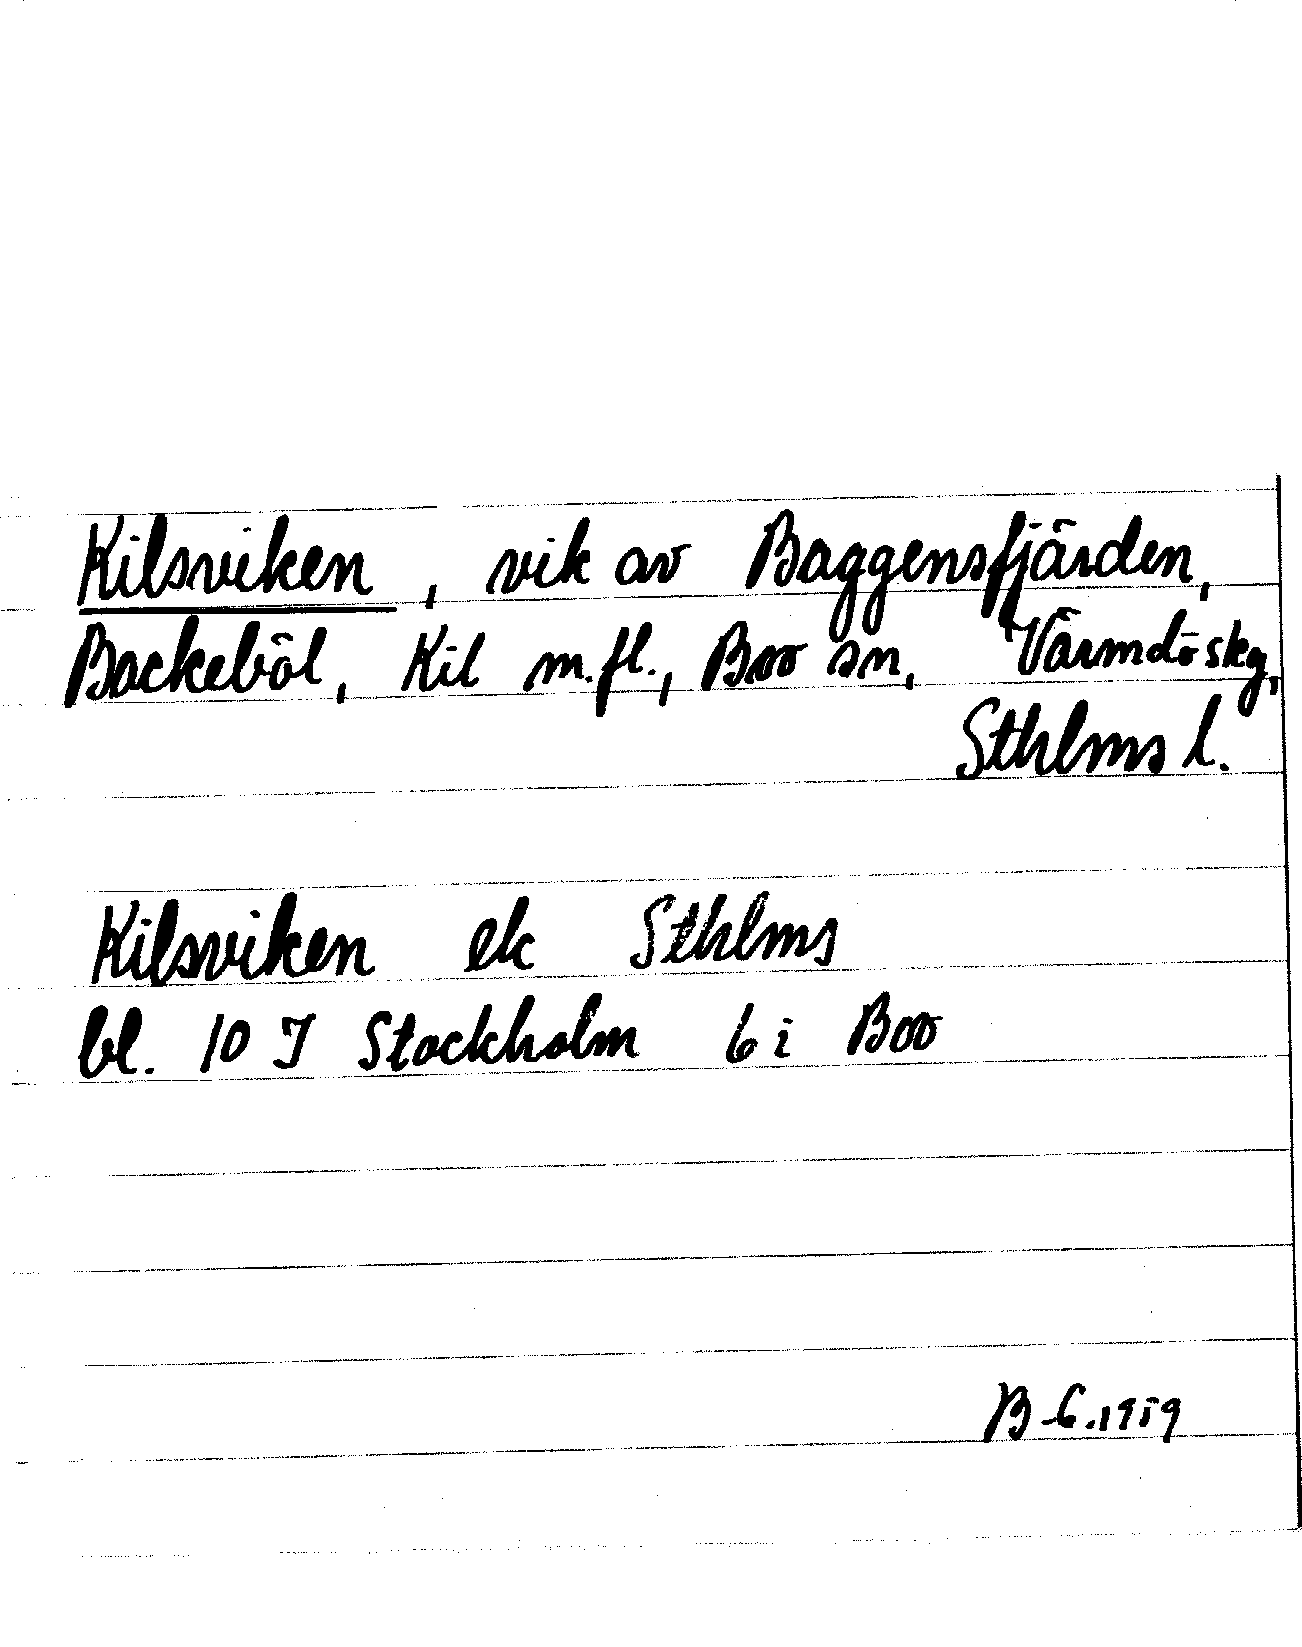 Kilsviken, vik av Baggensfjärden,
Backeböl, Kil m.fl., Boo sn, Värmdö skg,
Sthlms l.
Kilsviken ek Sthlms
bl. 10 J Stockholm 6 i Boo
B-6.1959